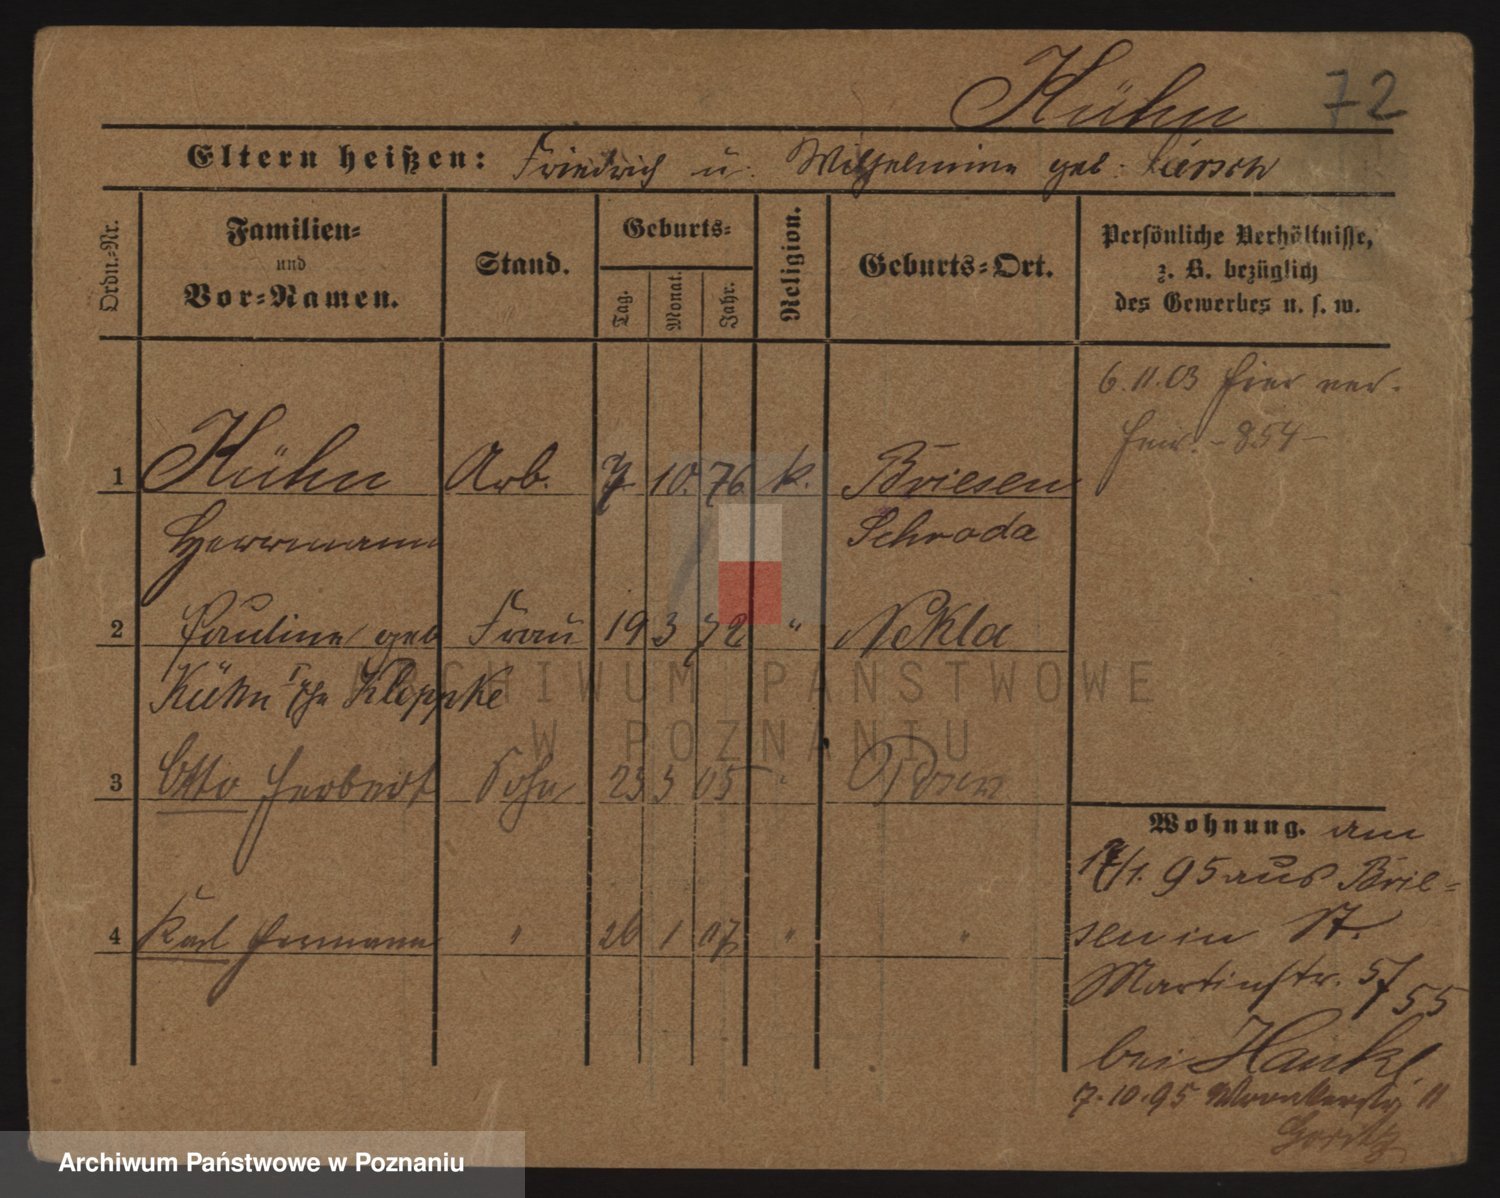 Kühn 72
Eltern heißen: Friedrich u. Wilhelmine geb.
Ordn.-Nr.
Familien-
und
Vor-Namen.
Stand.
Geburts-
Tag. Monat. Jahr.
Religion.
Geburts-Ort.
Persönliche Verhältnisse,
z. B. bezüglich
des Gewerbes u. s. w.
6.11.03 hier ver-
heir. - 854 -
1 Kühn Arb. 7 10. 76 k. Briesen
Herrmann Schroda
2 Pauline geb Frau 19 3 72 " Nekla
Kühn Kloppke
3 Otto Herbert Sohn 23 3 05 " Posen
Wohnung. am
17/1. 95 aus Brie-
4 Karl Hermann " 26 1 07 " "
sen in St.
Martinstr. 57 55
bei
7.10.95 Wronkerstr. 11
ARCHIWUM PAŃSTWOWE
W POZNANIU
Archiwum Państwowe w Poznaniu